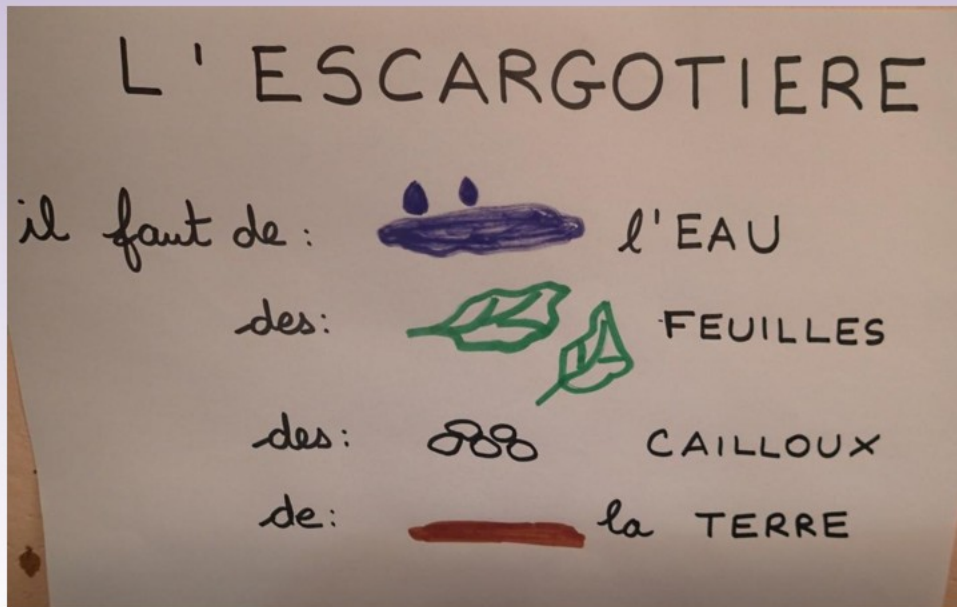 L'ESCARGOTIERE
il faut de : l'EAU
des : FEUILLES
des : CAILLOUX
de : la TERRE